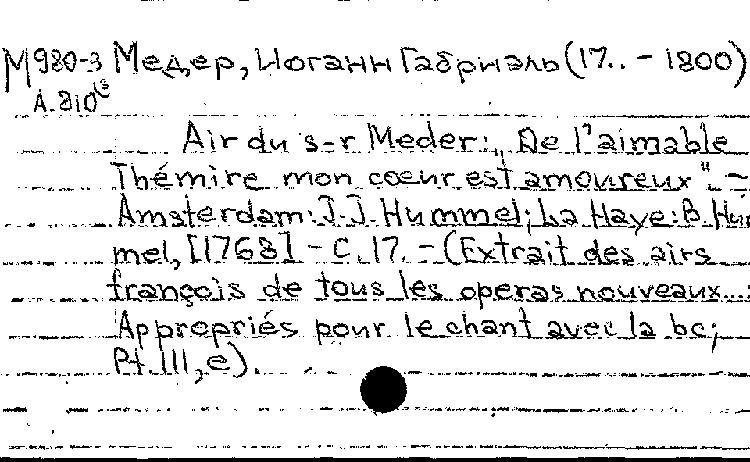 М980-3 Медер, Иоганн Габриэль (17.. - 1800)
А.810
Air du s-r Meder: „De l'aimable
Thémire mon coeur est amoureux". -
Amsterdam: J.J. Hummel; La Haye: B. Hum
mel, [1768] - С. 17. - (Extrait des airs
françois de tous les operas nouveaux...:
Appropriés pour le chant avec la bc;
Pt. III, e).